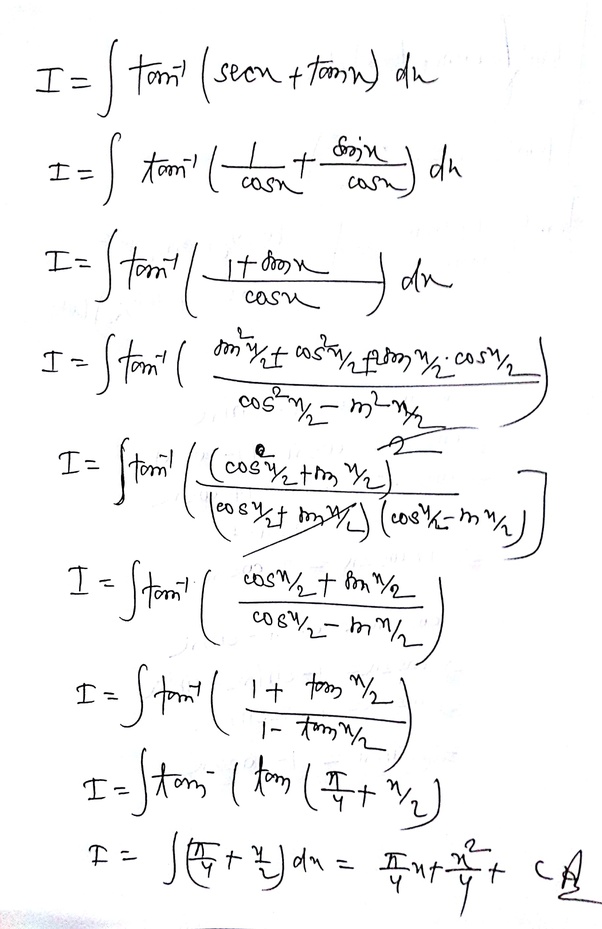 I = ∫ tan⁻¹ (secx + tanx) dx
I = ∫ tan⁻¹ (1/cosx + sinx/cosx) dx
I = ∫ tan⁻¹ ((1 + sinx)/cosx) dx
I = ∫ tan⁻¹ ((sin² x/2 + cos² x/2 + 2sin x/2 · cos x/2)/(cos² x/2 – sin² x/2))
I = ∫ tan⁻¹ ((cos x/2 + sin x/2)²/((cos x/2 + sin x/2) (cos x/2 – sin x/2))]
I = ∫ tan⁻¹ ((cos x/2 + sin x/2)/(cos x/2 – sin x/2))
I = ∫ tan⁻¹ ((1 + tan x/2)/(1 – tan x/2))
I = ∫ tan⁻ (tan (π/4 + x/2)
I = ∫(π/4 + x/2) dx = π/4 x + x²/4 + C